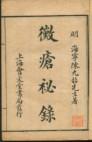 明 海寧陳九韶先生著
黴瘡祕錄
上海會文堂書局發行